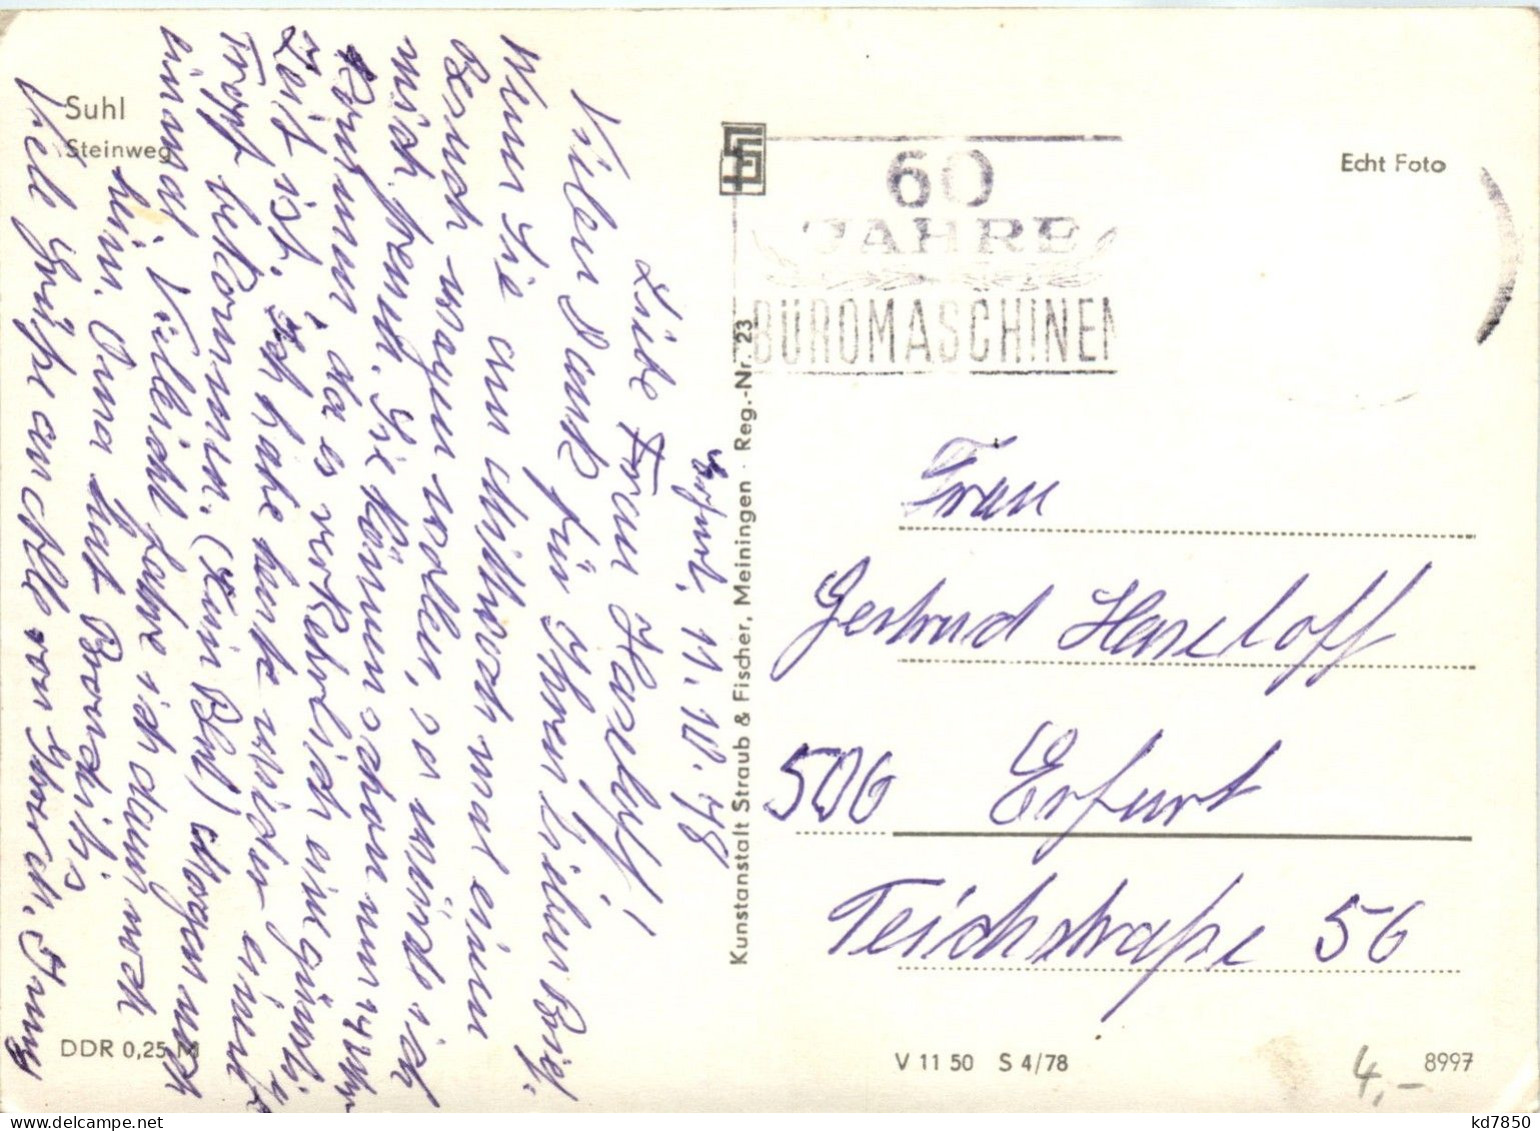 Suhl
Steinweg
Erfurt, 11.10.78
Liebe Frau Haseloff!
Vielen Dank für Ihren lieben Brief.
Wenn Sie am Mittwoch mal einen
Besuch wagen wollen, so würde ich
mich freuen. Sie können schon um
kommen, da es verkehrlich eine günstige
Zeit ist. Ich habe heute wieder einen
Tropf bekommen. (Kein Blut) Morgen noch
einmal. Vielleicht fahre ich dann noch
heim. Oma hat Bronchitis
Viele Grüße an alle von Ihrer
DDR 0,25 M
Kunstanstalt Straub & Fischer, Meiningen · Reg.-Nr. 23
60
JAHRE
BÜROMASCHINEN
Echt Foto
Frau
Gertrud Haseloff
506 Erfurt
Teichstraße 56
V 11 50 S 4/78
4,-
8997
kd7850